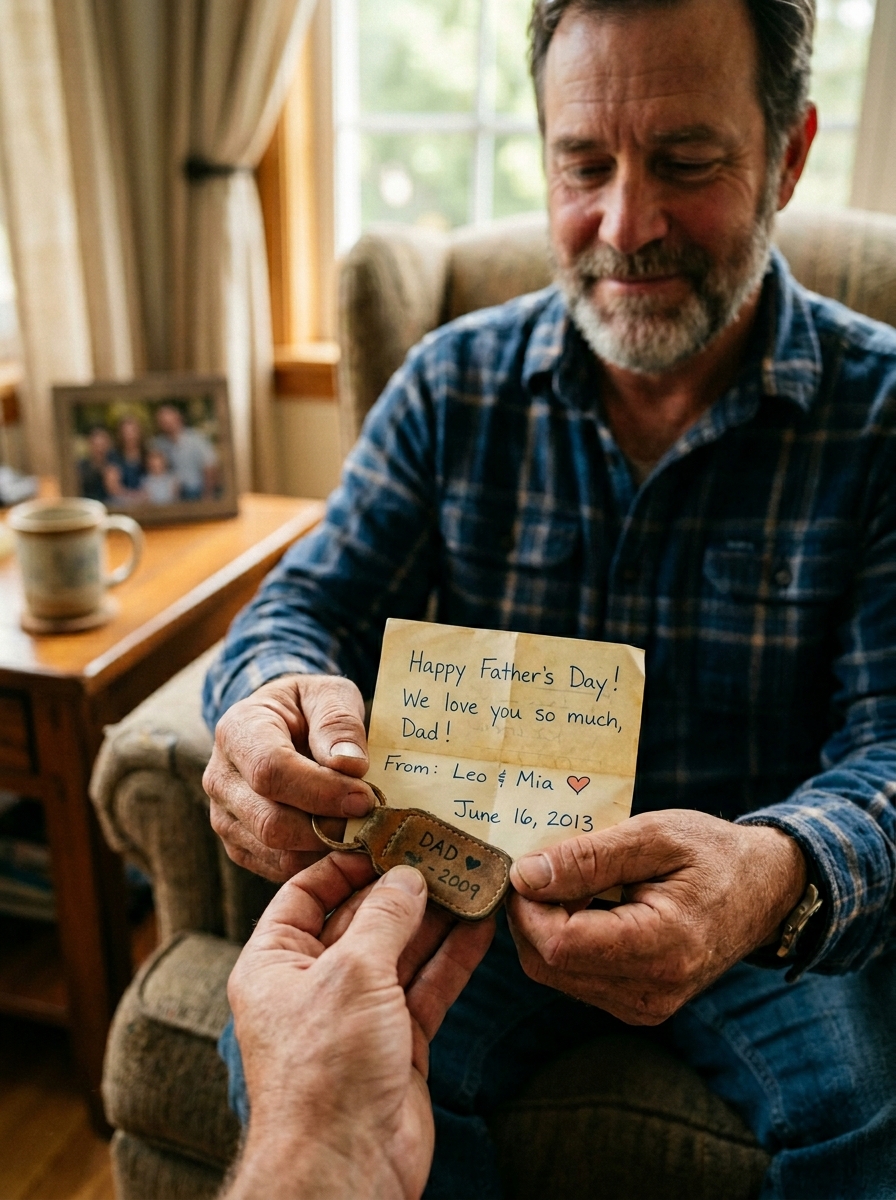 Happy Father's Day!
We love you so much,
Dad!
From: Leo & Mia ♥
June 16, 2013
DAD ♥
- 2009